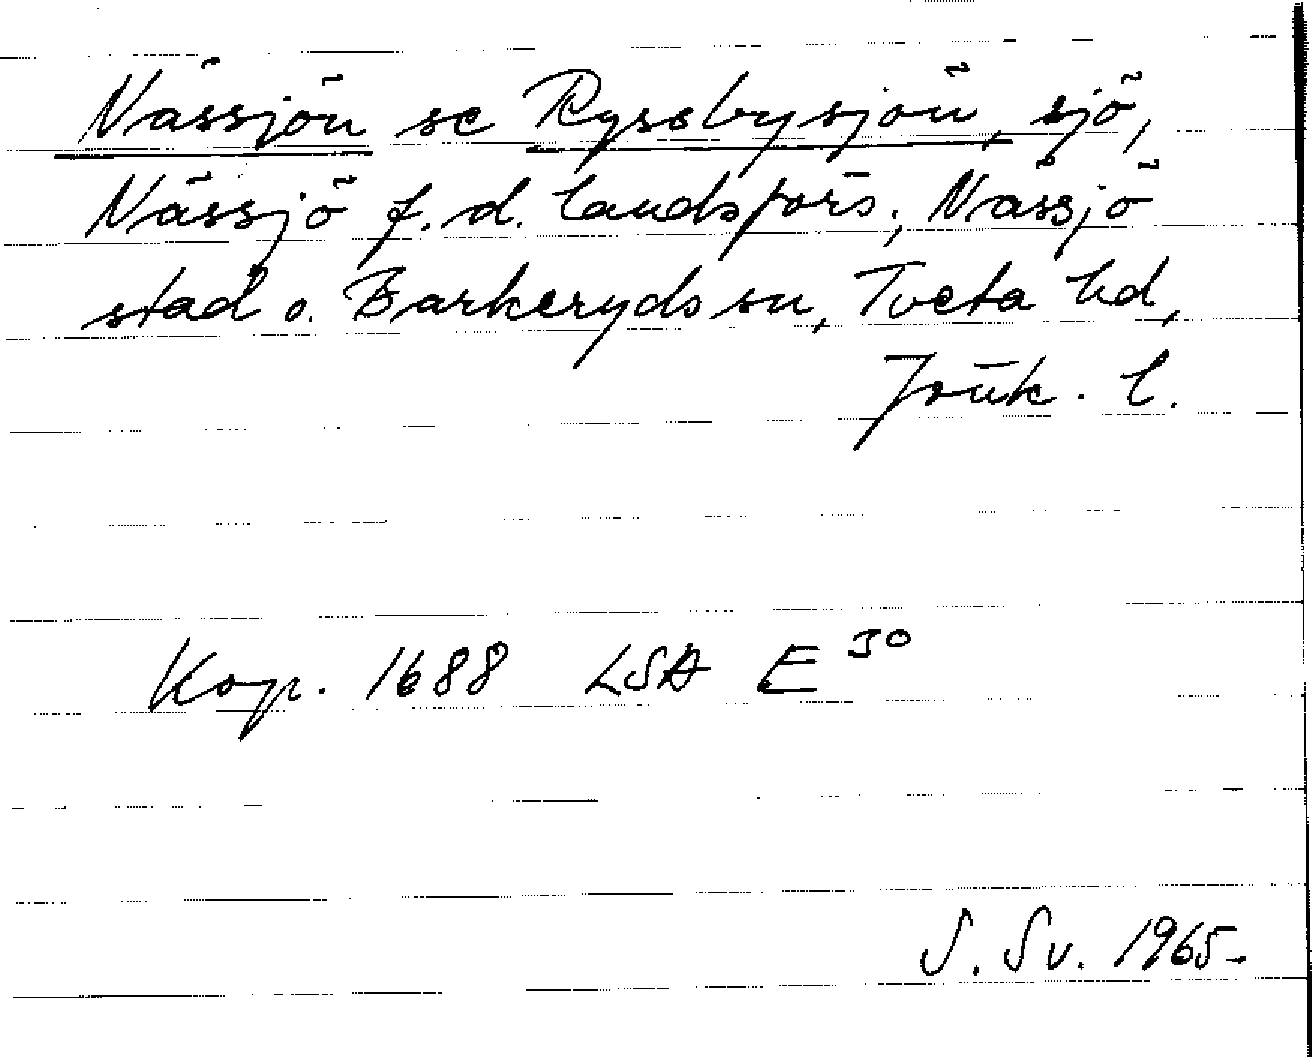 Nässjön se Ryssbysjön, sjö,
Nässjö f. d. landsförs., Nässjö
stad o. Barkeryds sn, Tveta hd,
Jönk. l.
Kop. 1688 LSA E 30
S. Sv. 1965